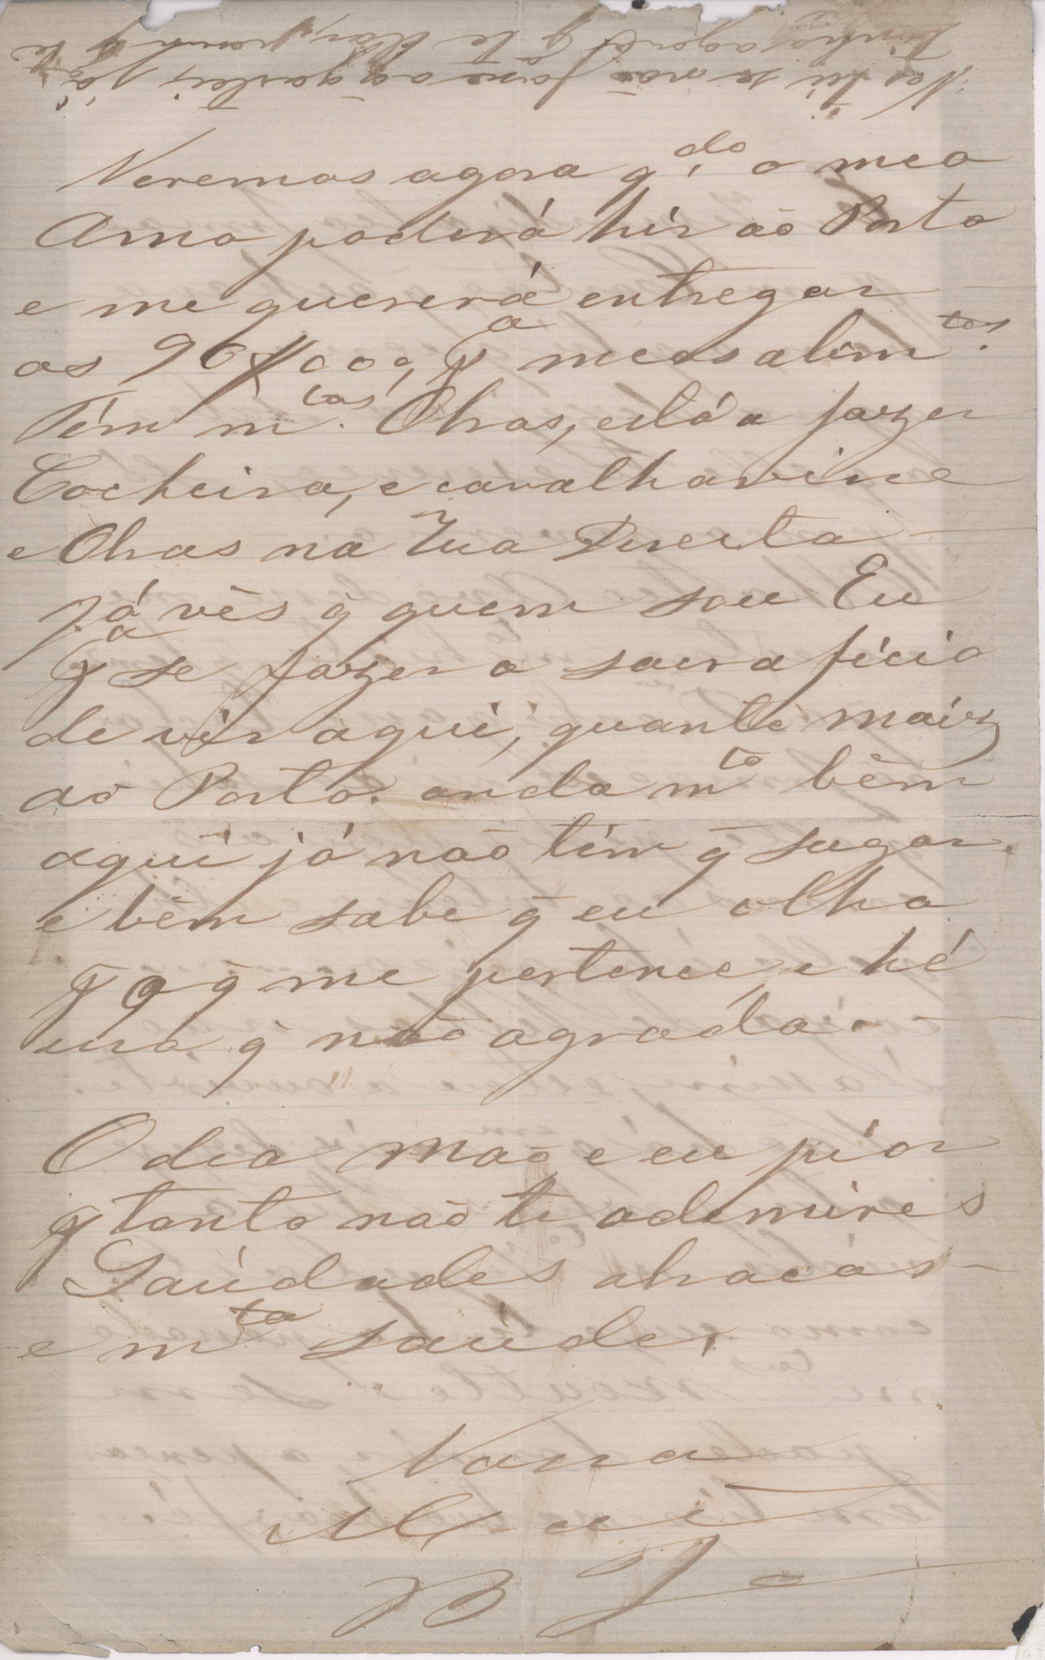 Veremos agora q.do o meo
Amo poderá hir ao Porto
e me quererá entregar
os 96$000, pa meos alim.tos
Tém m.tas Obras, está a fazer
Cocheira, e cavalharice
e Obras na Rua Direita
Já vês q̃ quem sou Eu
pa se fazer o sacrafício
de vir aqui, quanto maiz
ao Porto. anda m.to bêm
aqui já não têm q̃ sugar.
e bêm sabe q̃ eu olho
p o q̃ me pertence, e hé
q̃ não agrada.
O dia mao, e eu pior
p tanto não te ademires
Saúdades abraços
e m.ta saúde.